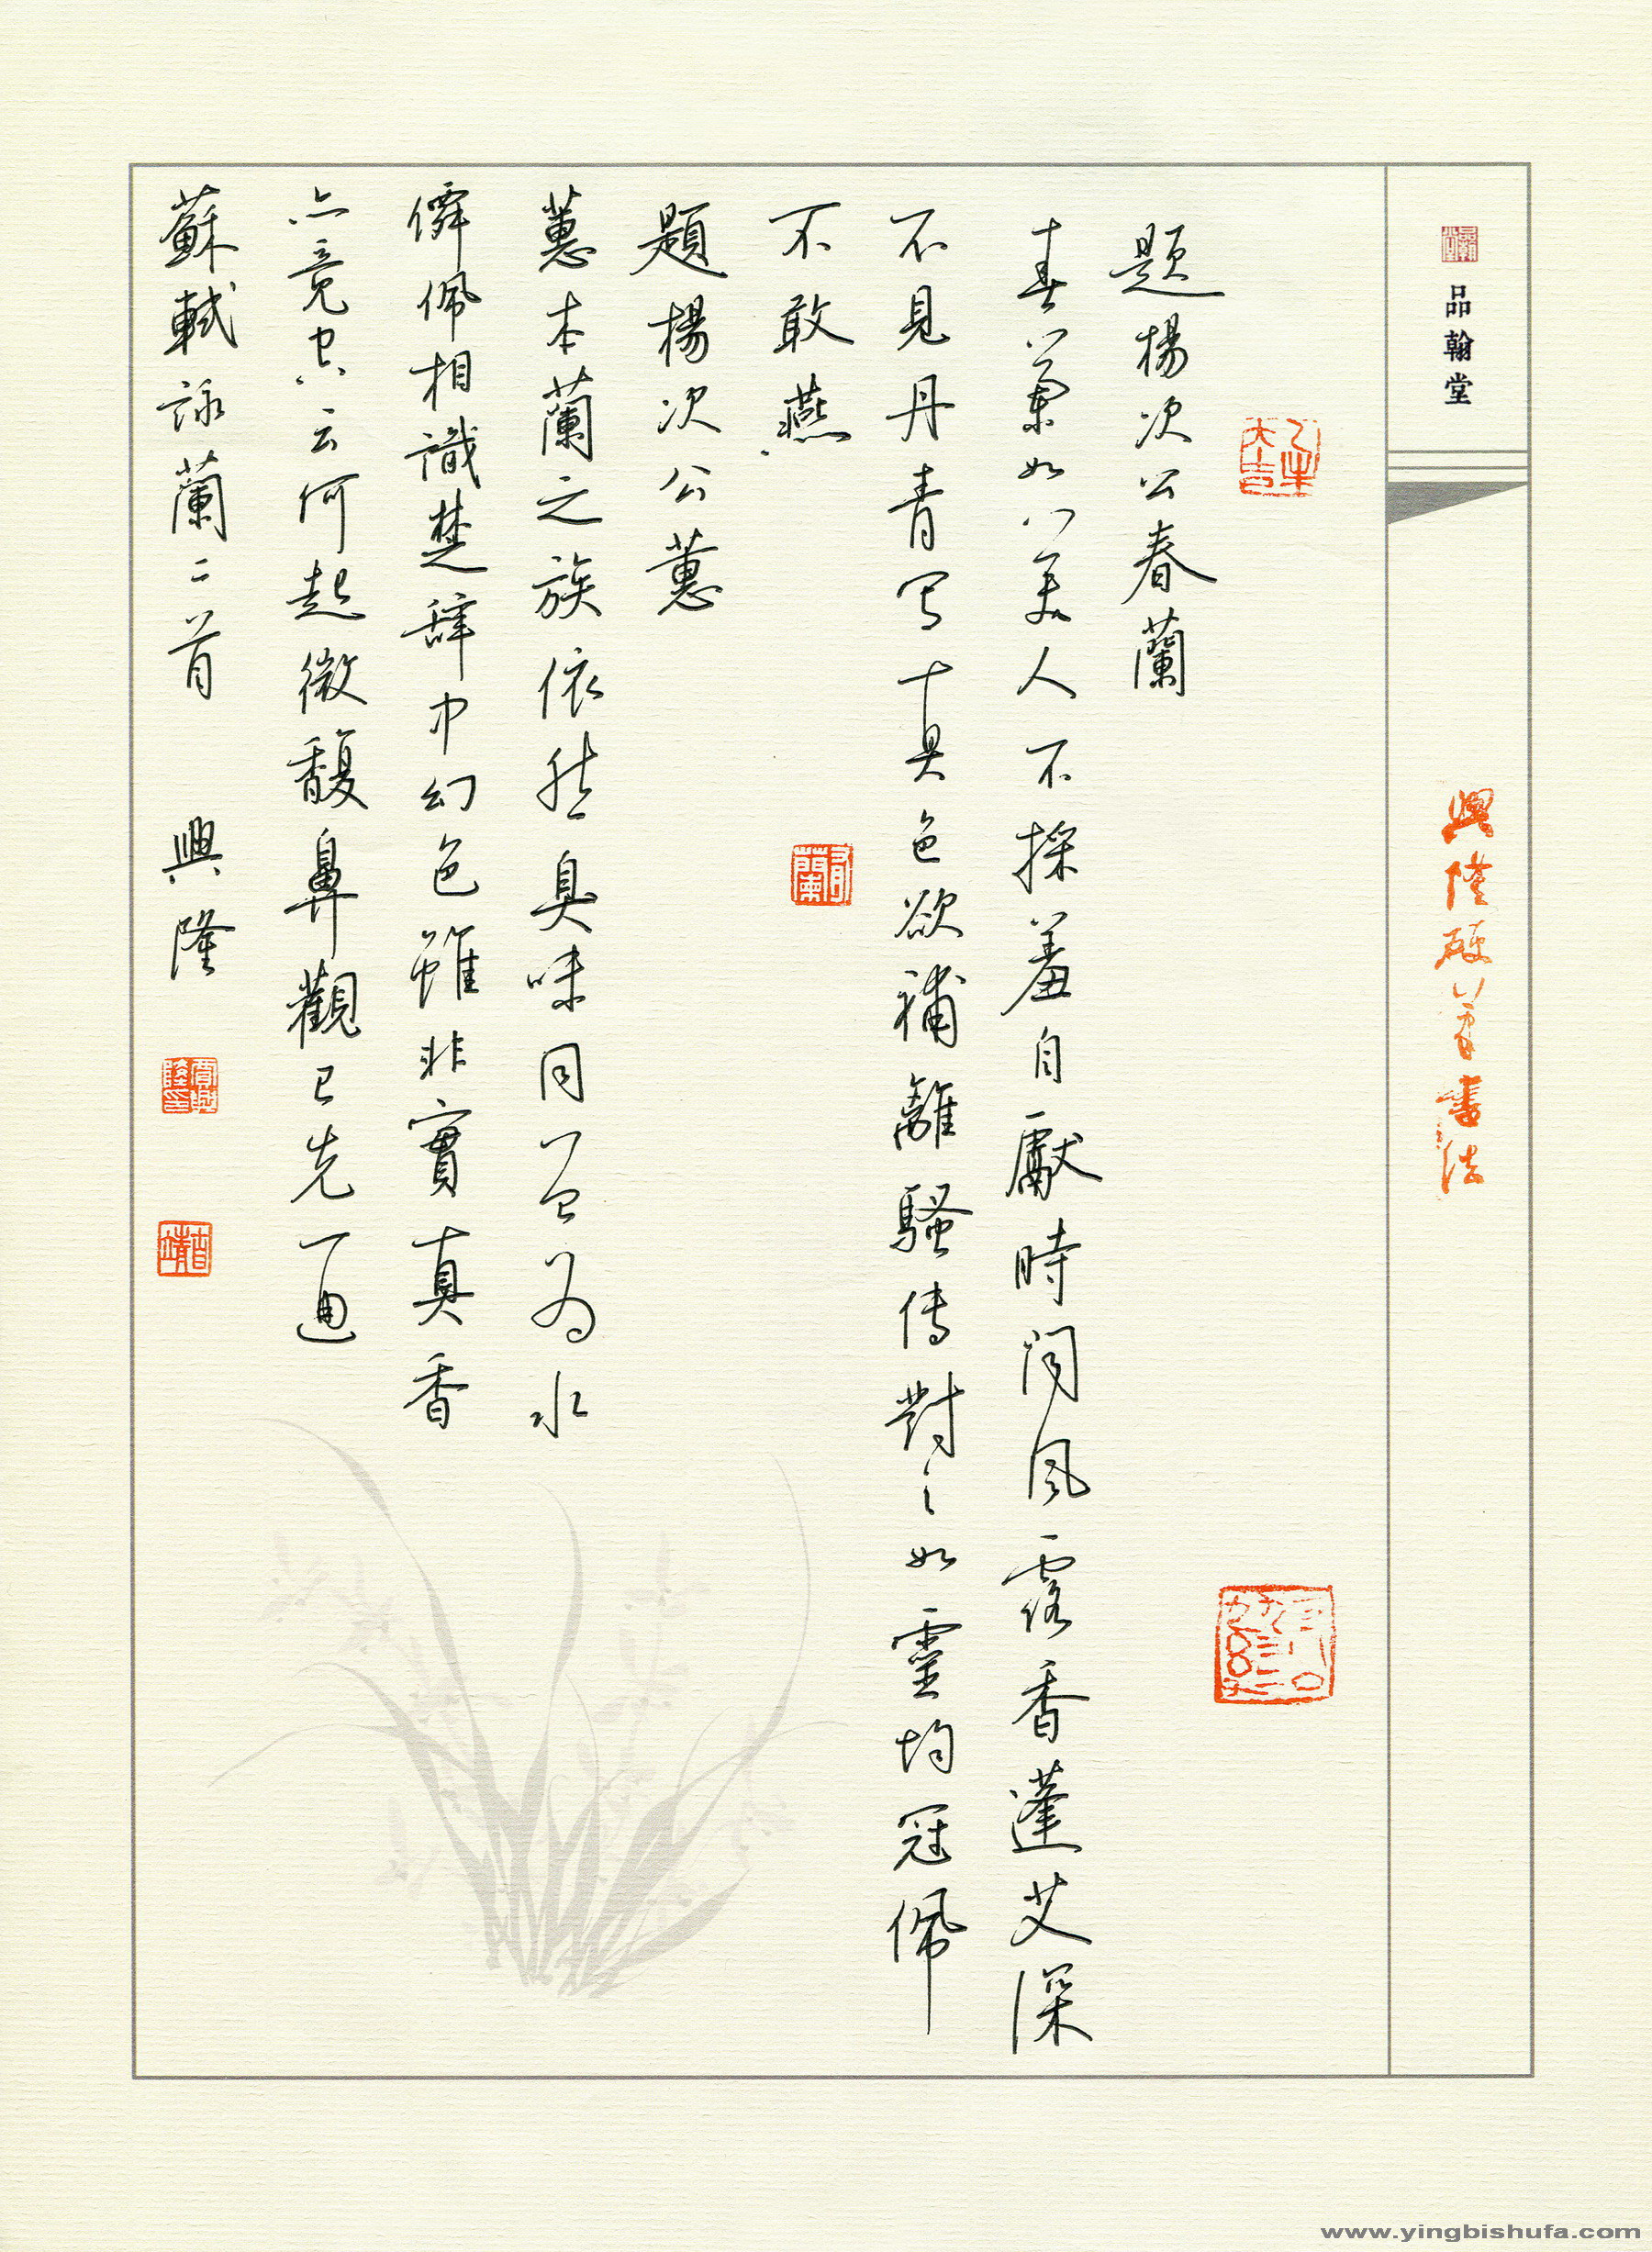 品翰堂
興隆硬筆書法
乙未大吉
題楊次公春蘭
春蘭如美人不採羞自獻時聞風露香蓬艾深
不見丹青写真色欲補離騷传對之如靈均冠佩
不敢燕
題楊次公蕙
蕙本蘭之族依然臭味同曾為水
僊佩相識楚辭中幻色雖非實真香
亦竟空云何起微馥鼻觀已先通
蘇軾詠蘭二首 興隆
www.yingbishufa.com